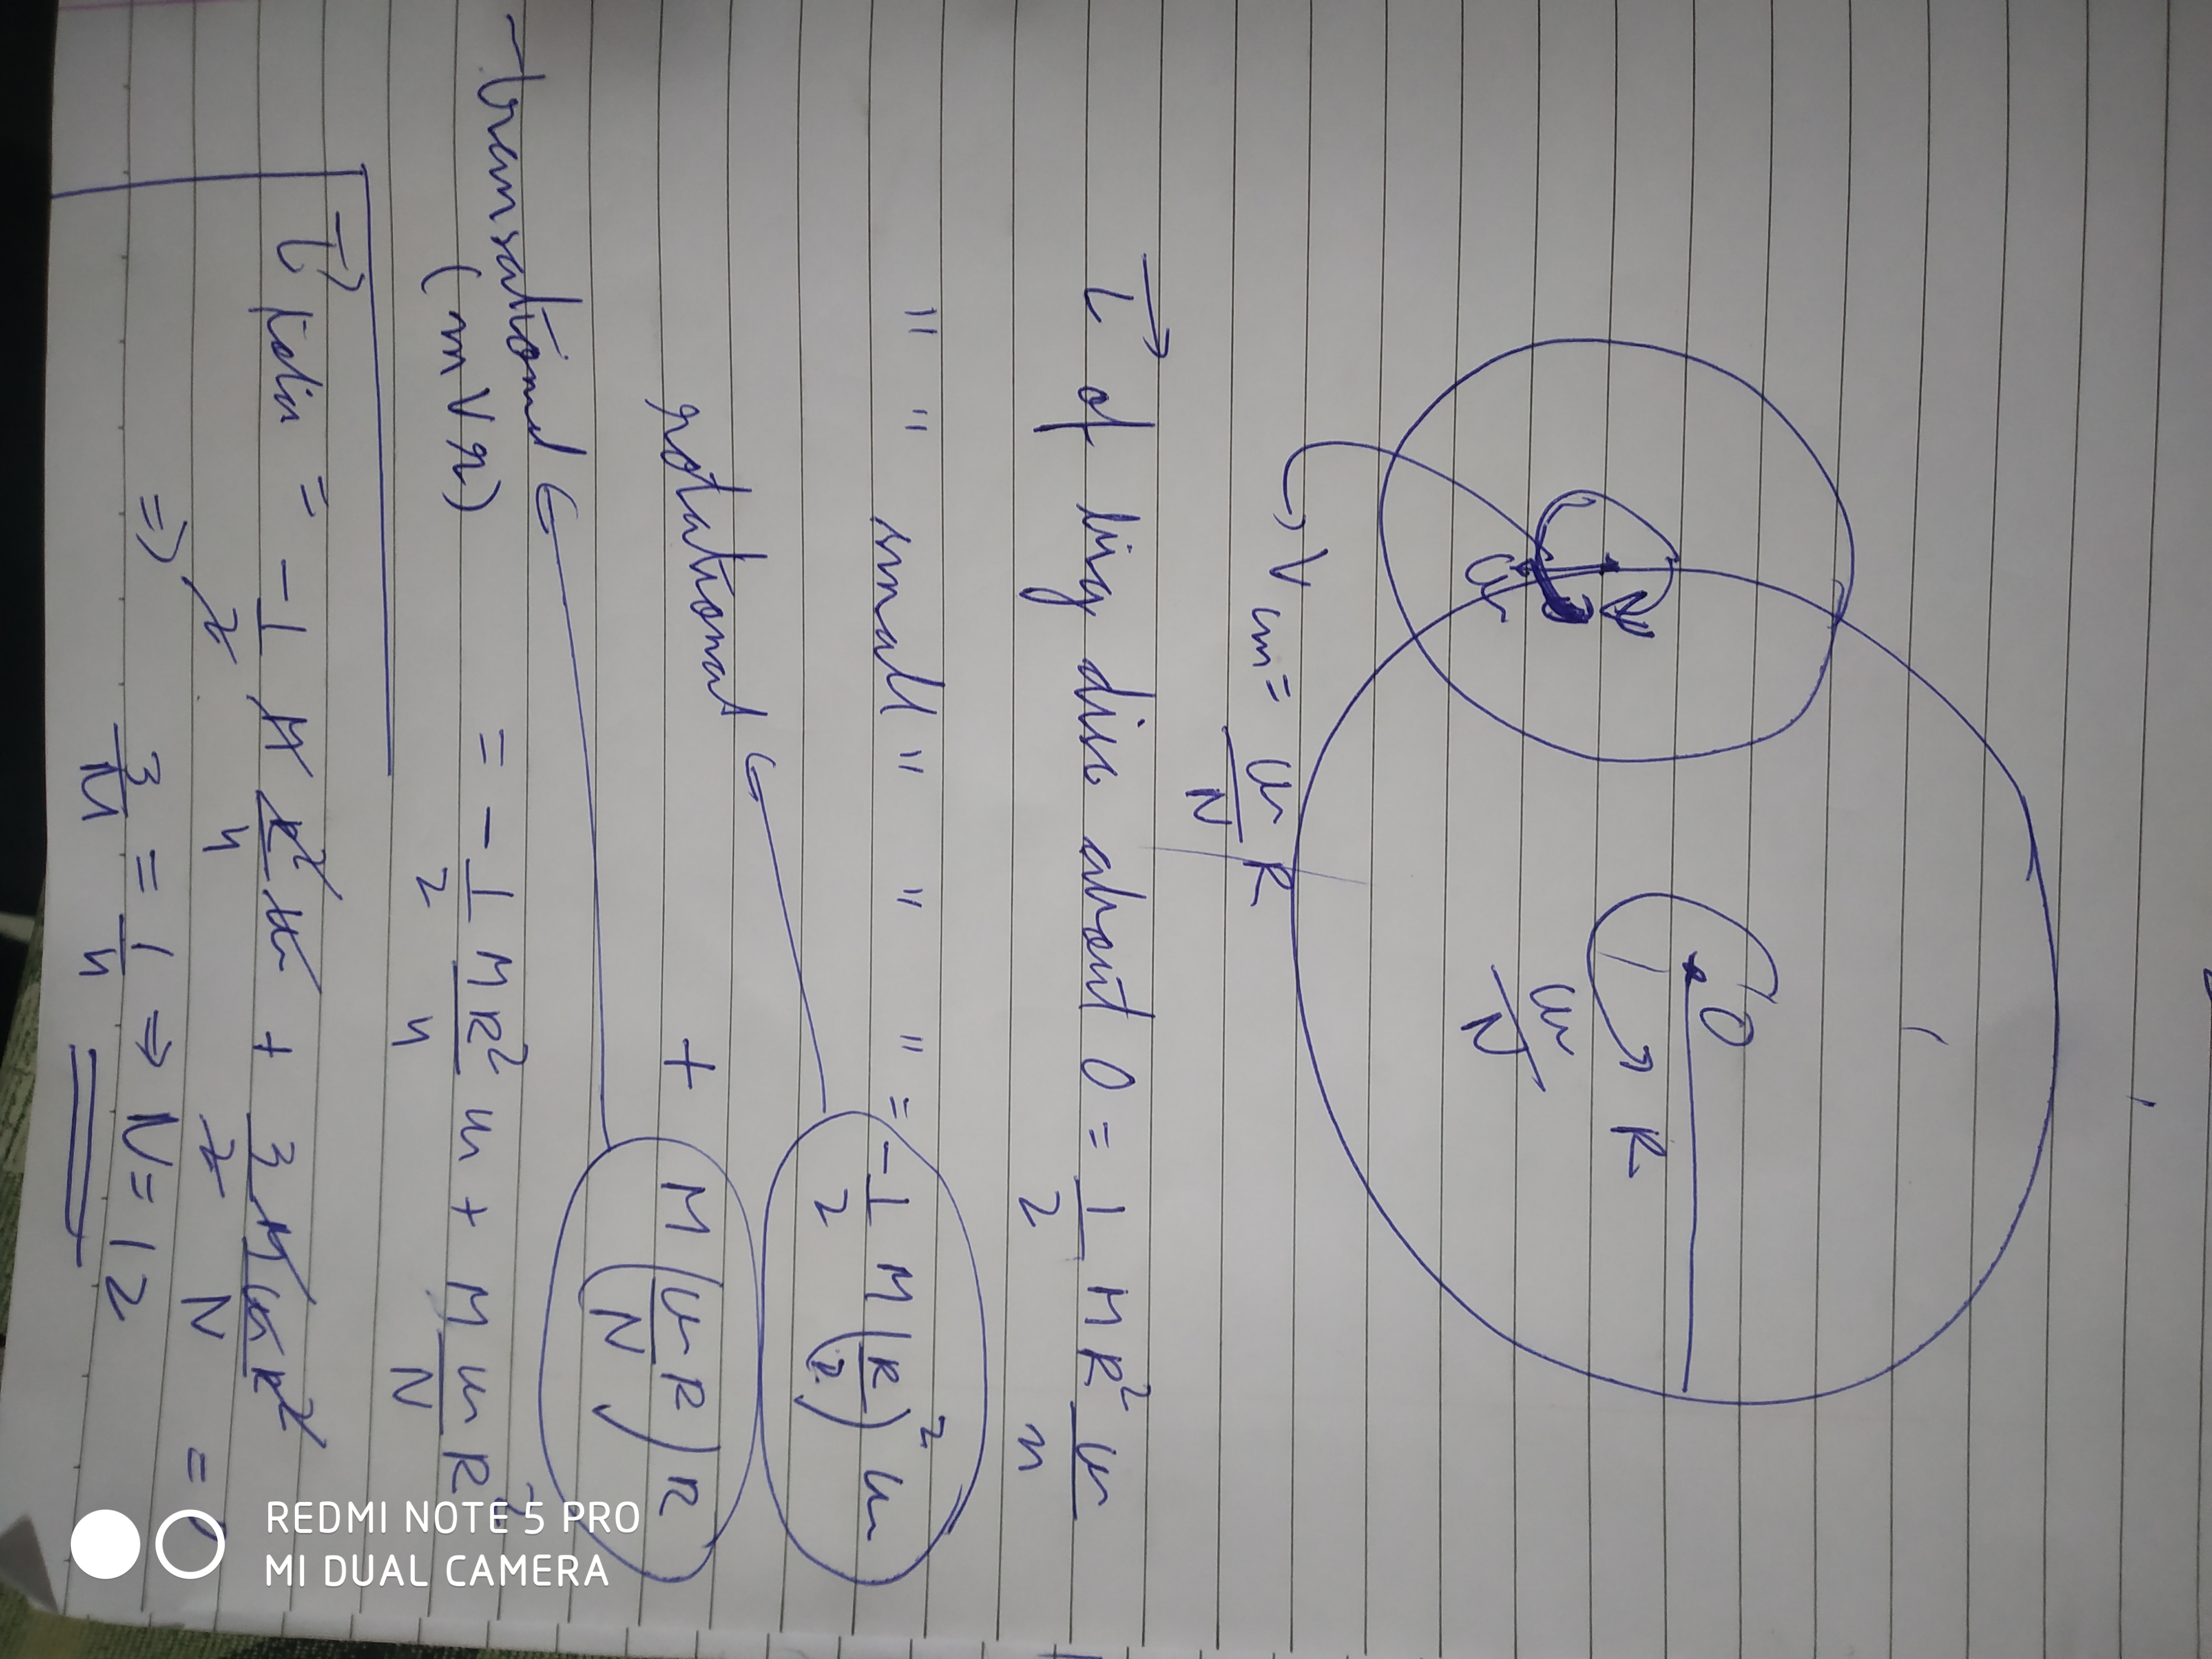 O
R
ω/N
ω
V cm = ω/N R
L⃗ of big disc about O = 1/2 MR² ω/n
" " small " " " = -1/2 M(R/2)² ω
rotational + M(ω/N R)R
transational
(mVr) = -1/2 MR²/4 ω + M ω/N R²
= -1/2 M R²/4 ω + 3/2 MωR²/N = 0
⇒ 3/N = 1/4 ⇒ N = 12
REDMI NOTE 5 PRO
MI DUAL CAMERA